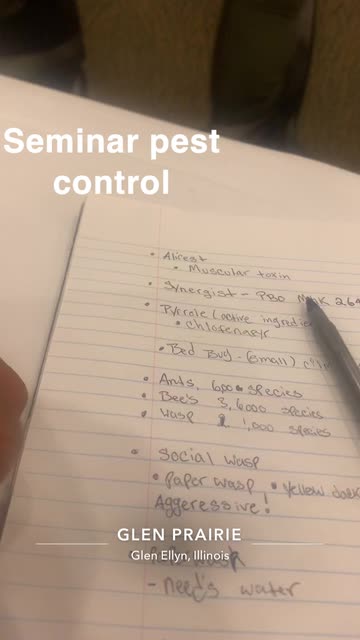 Seminar pest
control
• Alicest
• Muscular toxin
• Synergist - PBO MGK 264
• Pyrrole (active ingredie
• Chlofenapyr
• Bed Bug - (small)
• Ants, 600 species
• Bee's 3,6000 species
• wasp 1,000 species
• Social wasp
• paper wasp • yellow
Aggeressive!
GLEN PRAIRIE
Glen Ellyn, Illinois
- need's water